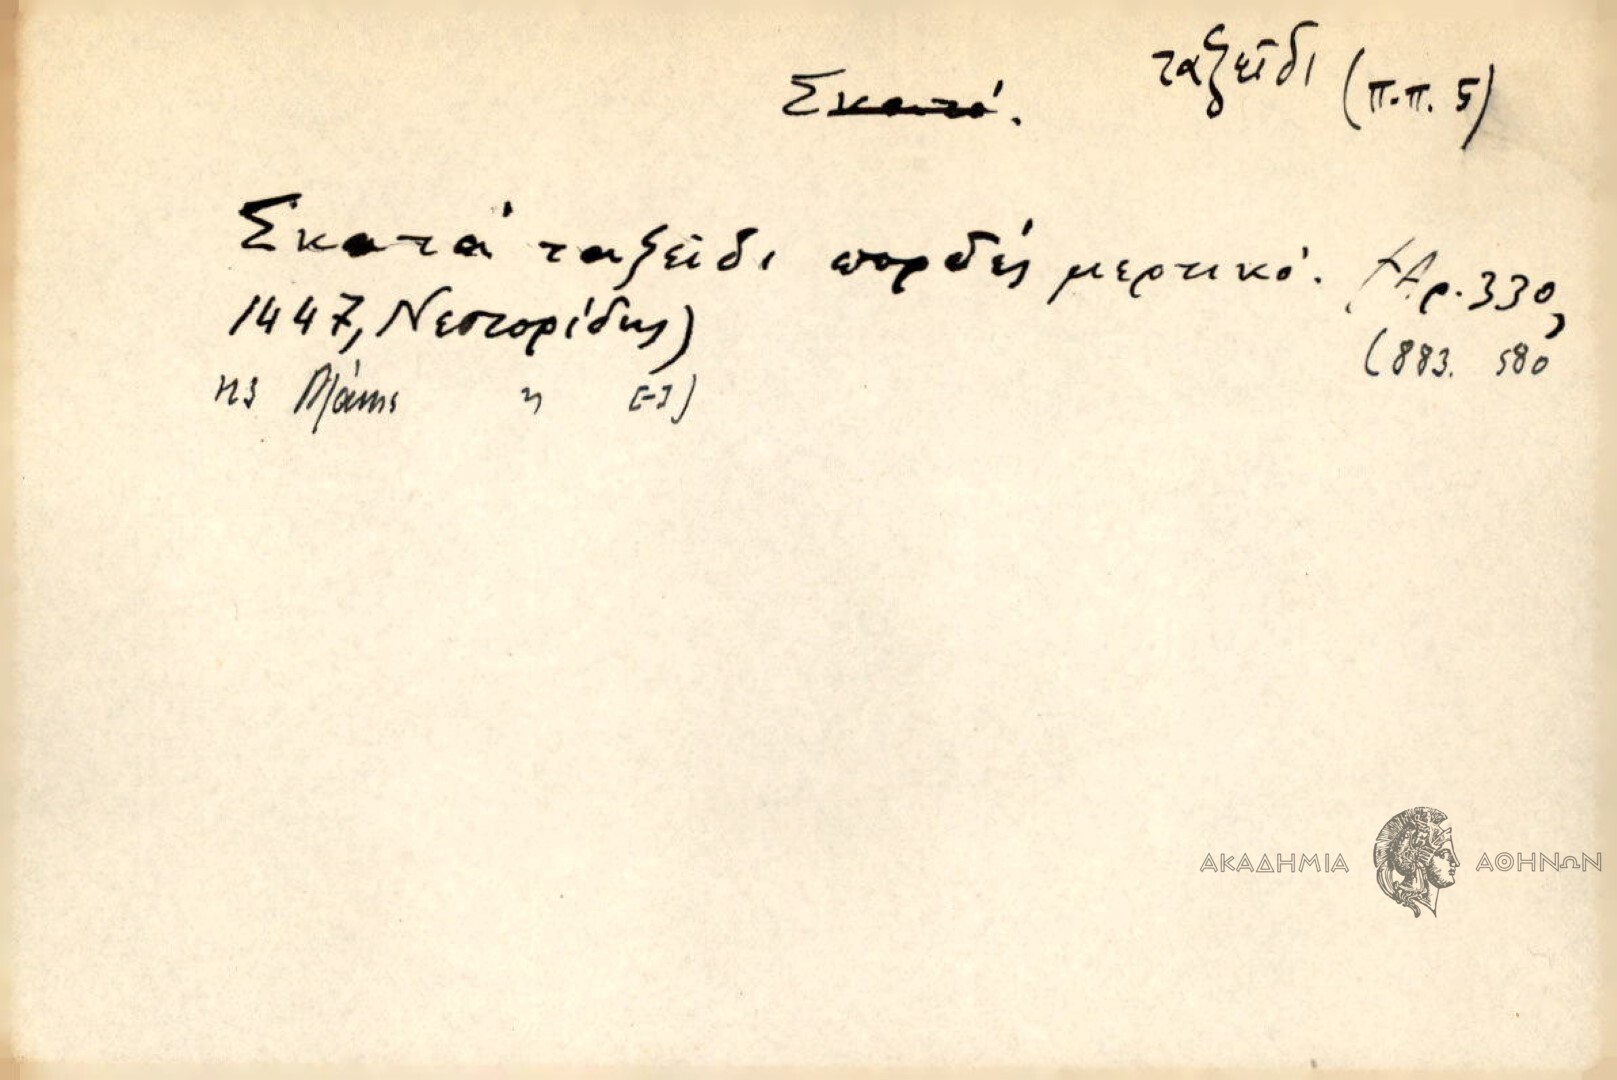 Σκατά. ταξεῖδι (π.π. 5)
Σκατά ταξεῖδι πορδές μερτικό. (Ἀρ. 330,
1447, Νεστορίδης)
(883. 580
η )
ΑΚΑΔΗΜΙΑ ΑΘΗΝΩΝ